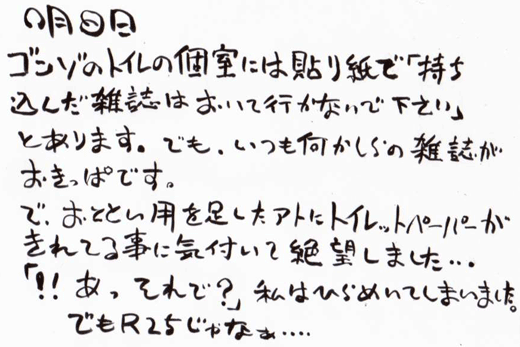 ○月○日
ゴンゾのトイレの個室には貼り紙で「持ち
込んだ雑誌はおいて行かないで下さい」
とあります。でも、いつも何かしらの雑誌が
おきっぱです。
で、おととい用を足したアトにトイレットペーパーが
きれてる事に気付いて絶望しました…
「!! あっ それで?」私はひらめいてしまいました。
でもR25じゃなぁ‥‥